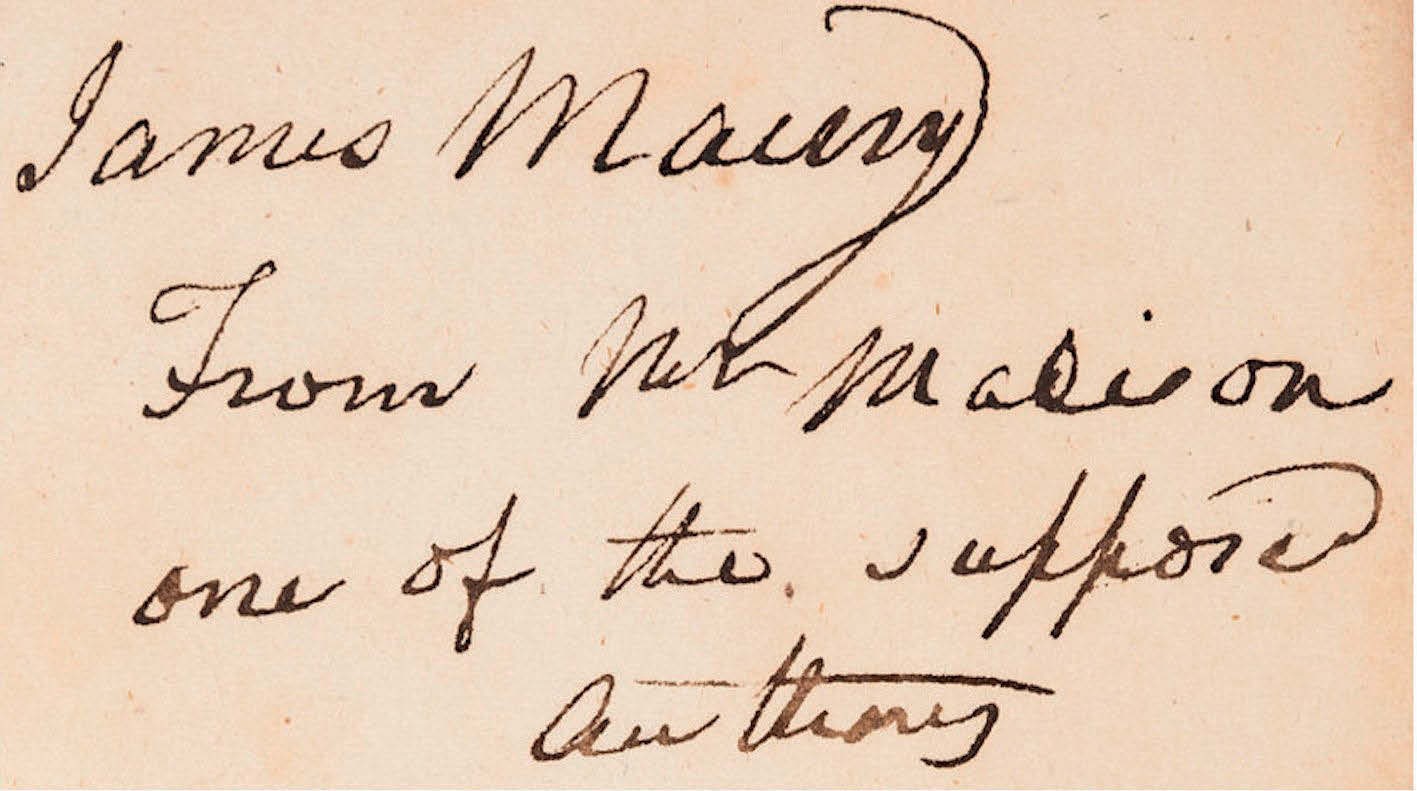 James Maury
From Mr Madison
one of the supposed
Authors